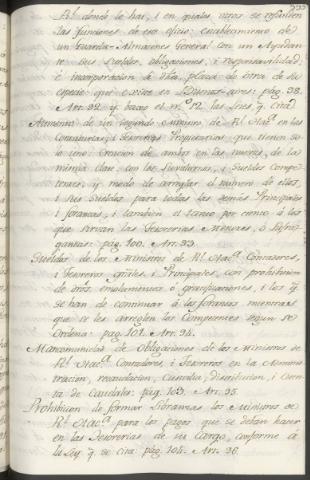 Rl. donde le hai, i en quales otros se refunden
las funciones de ese oficio: establecimiento de
un Guarda-Almacenes General con un Ayudan
te: sus sueldos, obligaciones, i responsavilidad:
é incorporacion á esta plaza de otra de su
especie que existe en Buenos-ayres: pag. 98.
Art. 92. y bajos el n.º 12 las leyes q. cita
de un segundo Ministro de Rl. Hac.ª en las
Contadurias, i Tesorerias Principales que tienen so
lo uno: Creacion de ambos en las nuevas, de la
misma clase, con los Subalternos, i Sueldos compe
tentes; y modo de arreglar el numero de ellos,
i sus Sueldos para todas las demás Principales
i foraneas, i tambien el tanto por ciento á los
que sirvan las Tesorerias Menores, ó Sufra
ganeas: pag. 100. Art. 93.
Sueldos de los Ministros de Rl. Hac.ª Contadores,
i Tesoreros grâles, i Principales, con prohibicion
de otros emolumentos ó gratificaciones, i los q.
se han de continuar á los foraneos mientras
que se les arreglen los Competentes segun se
Ordena: pag. 101. Art. 94.
Mancomunidad de Obligaciones de los Ministros de
Rl. Hac.ª Contadores, i Tesoreros en la Adminis
tracion, recaudacion, Custodia, distribucion, i Cuen
ta de Caudales: pag. 103. Art. 95.
Prohibicion de formar Libranzas los Ministros de
Rl. Hac.ª para los pagos que se deban hacer
en las Tesorerias de su Cargo, conforme á
la Ley q. se cita: pag. 104. Art. 96.